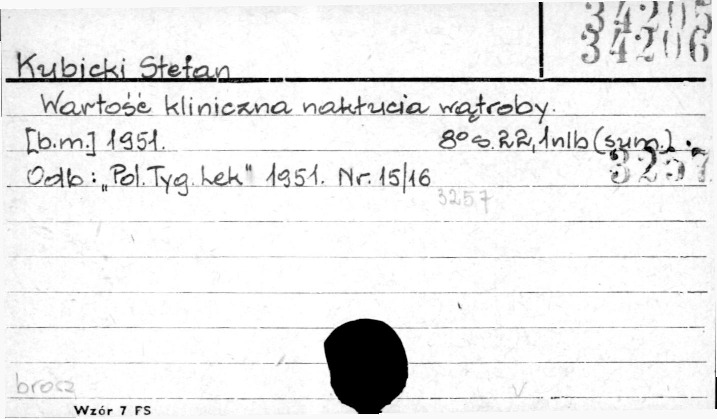 34205
34206
Kubicki Stefan
Wartość kliniczna nakłucia wątroby.
[b.m.] 1951. 8° s. 22, 1nlb (sum.).
Odb: „Pol. Tyg. Lek" 1951. Nr. 15/16
3257
3257
brosz
Wzór 7 FS